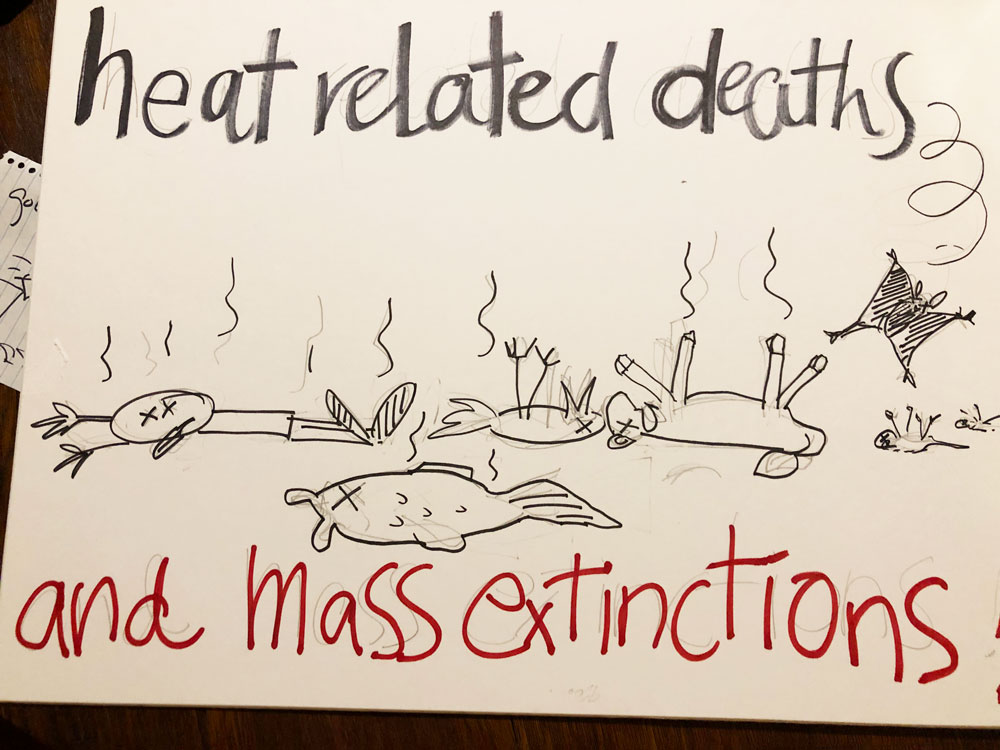 heat related deaths
and mass extinctions!